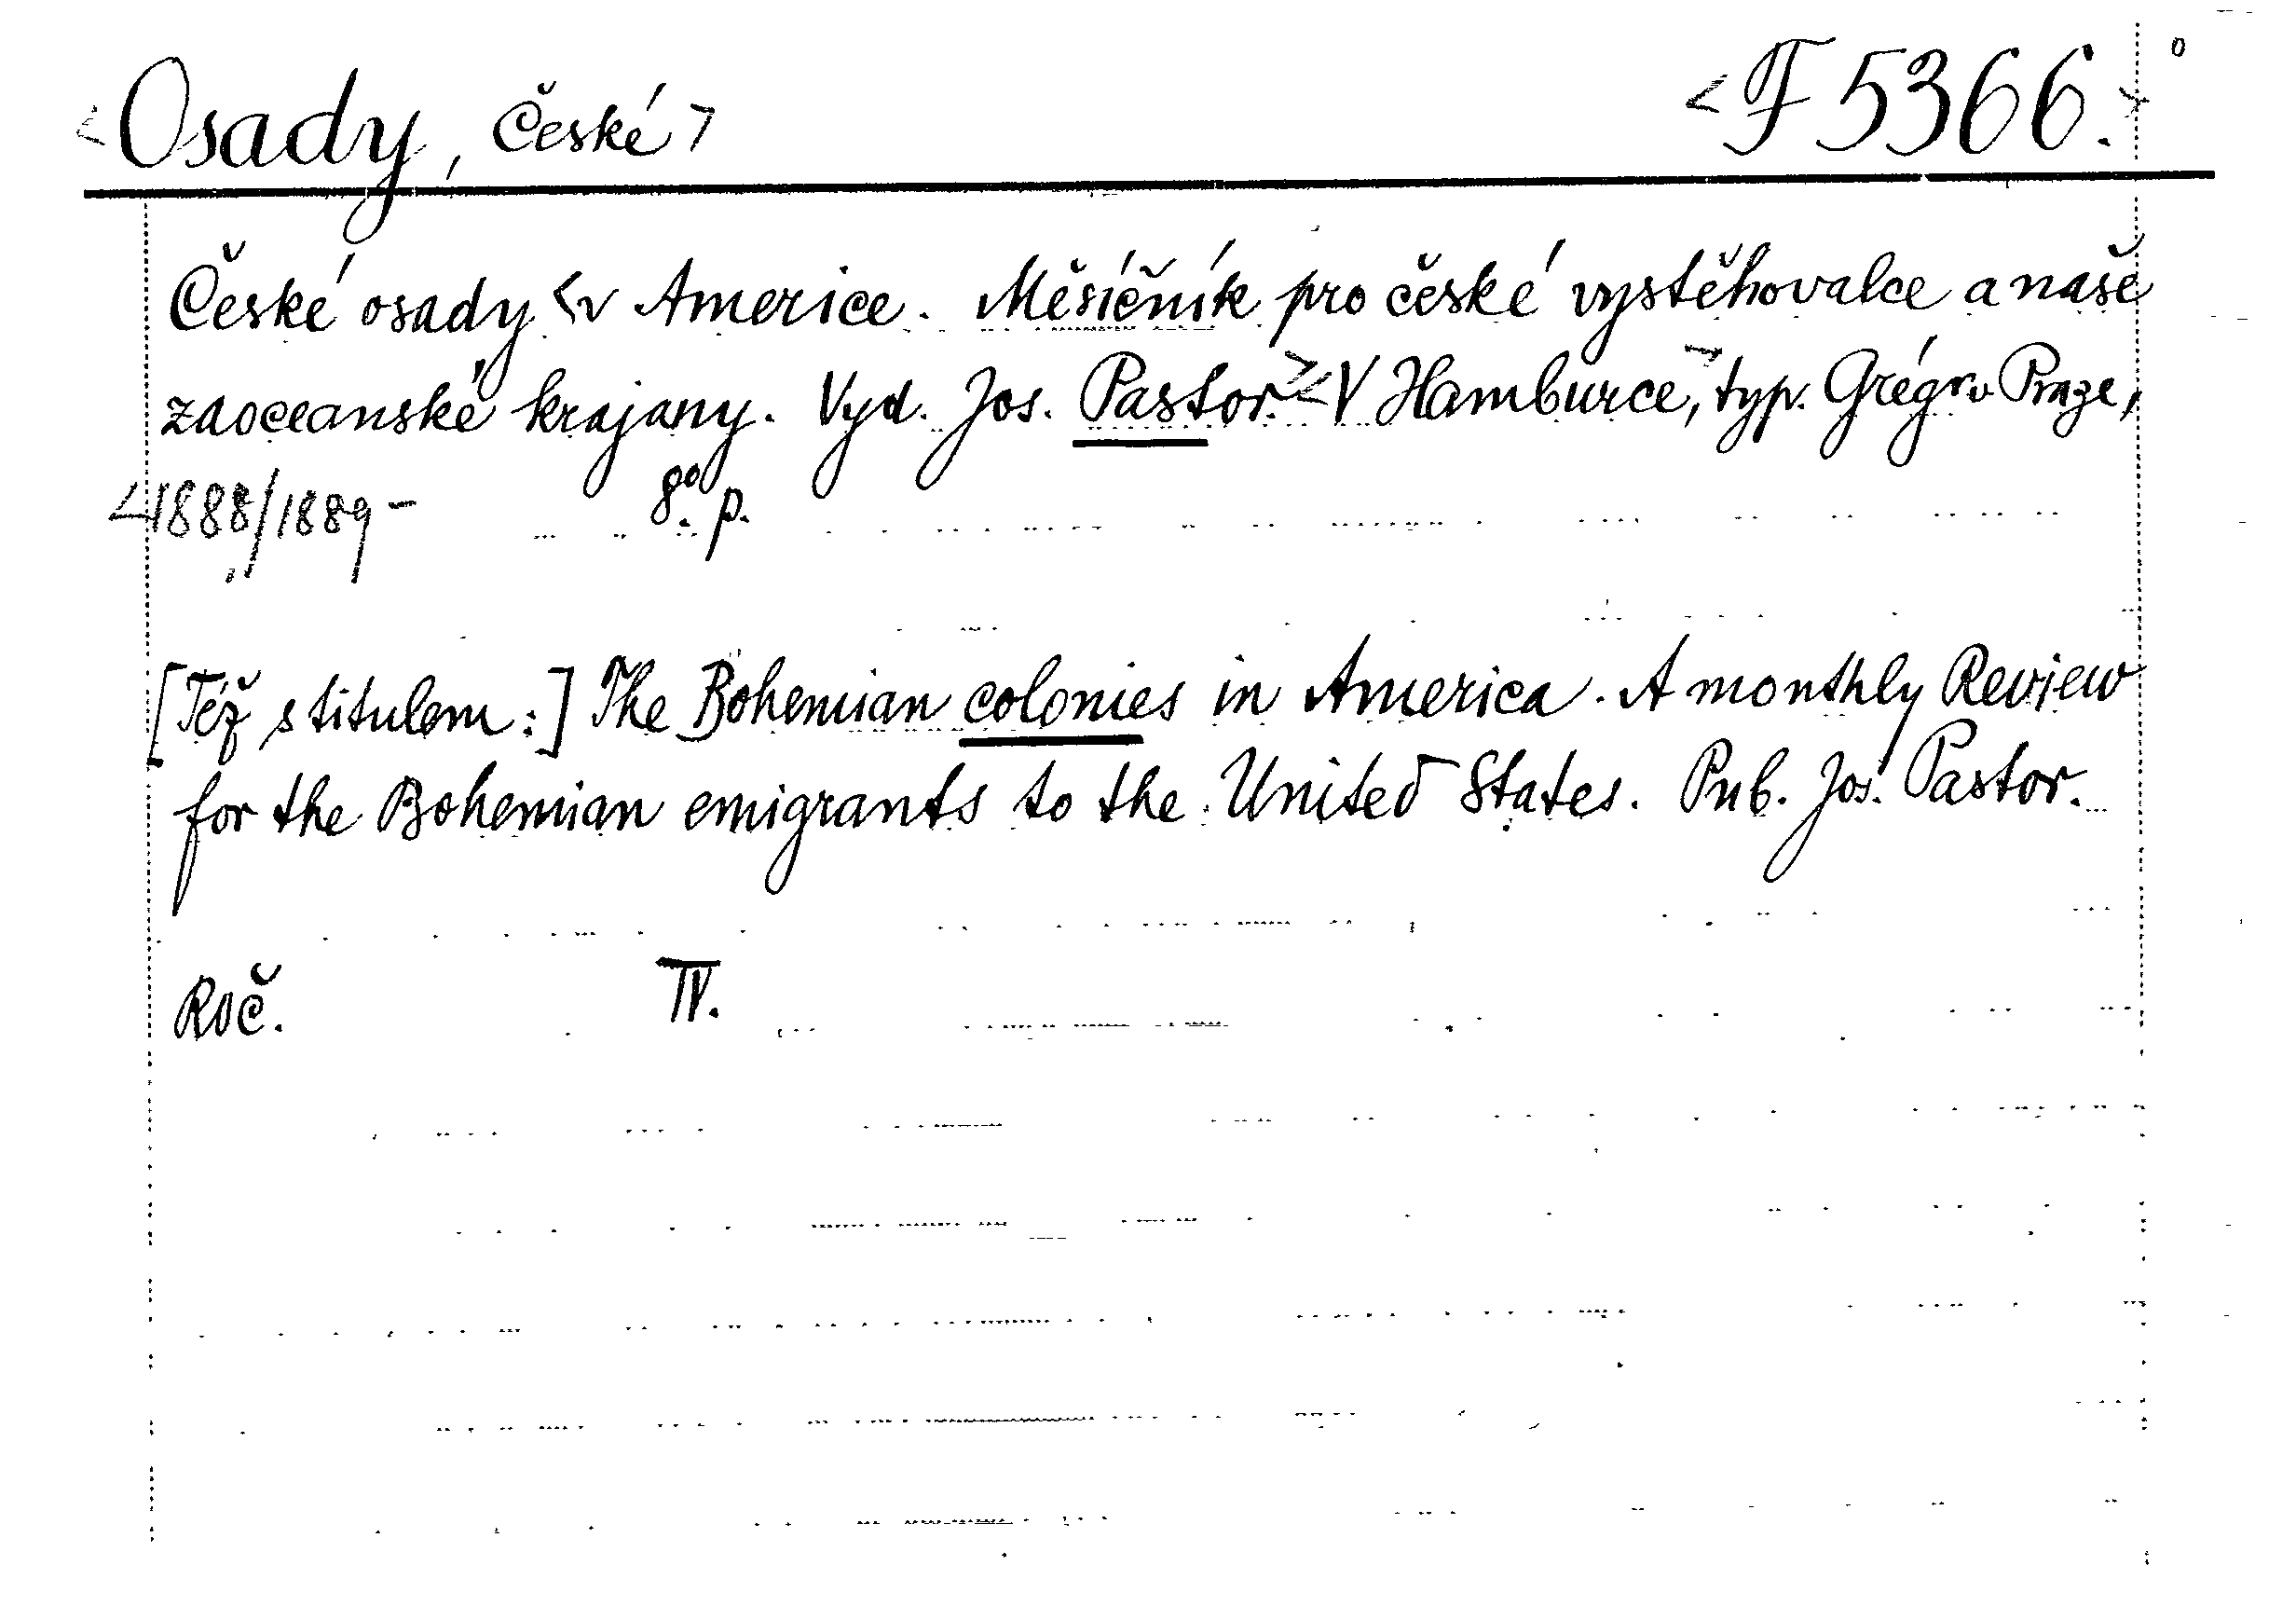 <Osady, České> <F 5366.>
České osady <v Americe. Měsíčník pro české vystěhovalce a naše
zaoceanské krajany. Vyd. Jos. Pastor.> <V Hamburce,> typ. Grégr v Praze,
<1888/1889 - 8º. p.
[Též s titulem:] The Bohemian colonies in America. A monthly Review
for the Bohemian emigrants to the United States. Pub. Jos. Pastor.
Roč. IV.